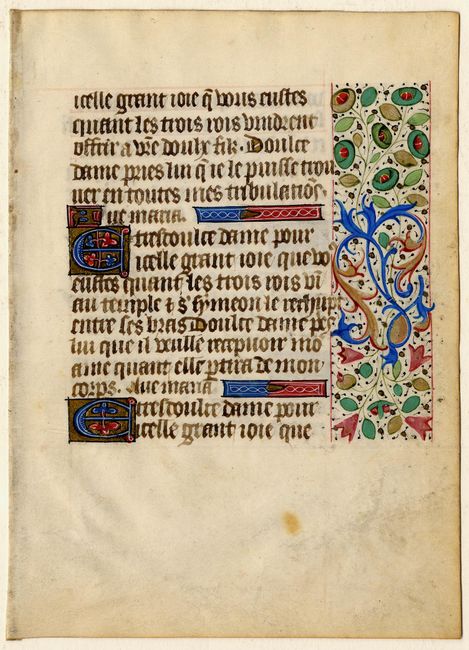 icelle grant ioie q̃ vous eustes
quant les trois rois vindrent
offrir a vr̃e doulx filz. Doulce
dame pries lui q̃ ie le puisse trou
uer en toutes mes tribulatiõs.
Aue maria
E tresdoulce dame pour
icelle grant ioie que vo9
eustes quant les trois rois
au temple et sʒ symeon le rechupt
entre ses bras Doulce dame
lui que il veulle recepuoir mõ
ame quant elle ꝑtira de mon
corps. Aue maria
E tresdoulce dame pour
icelle grant ioie que